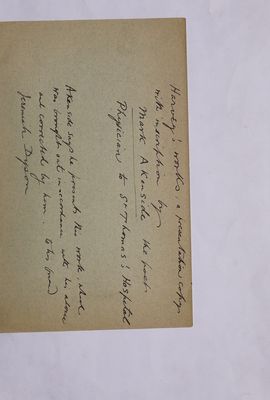 Harvey's works, a presentation copy
with inscription by
Mark Akenside the poet.
Physician to St Thomas's Hospital
Akenside says he presents this work, which
was brought out in accordance with his advice
and corrected by him to his friend
Jeremiah Dyson